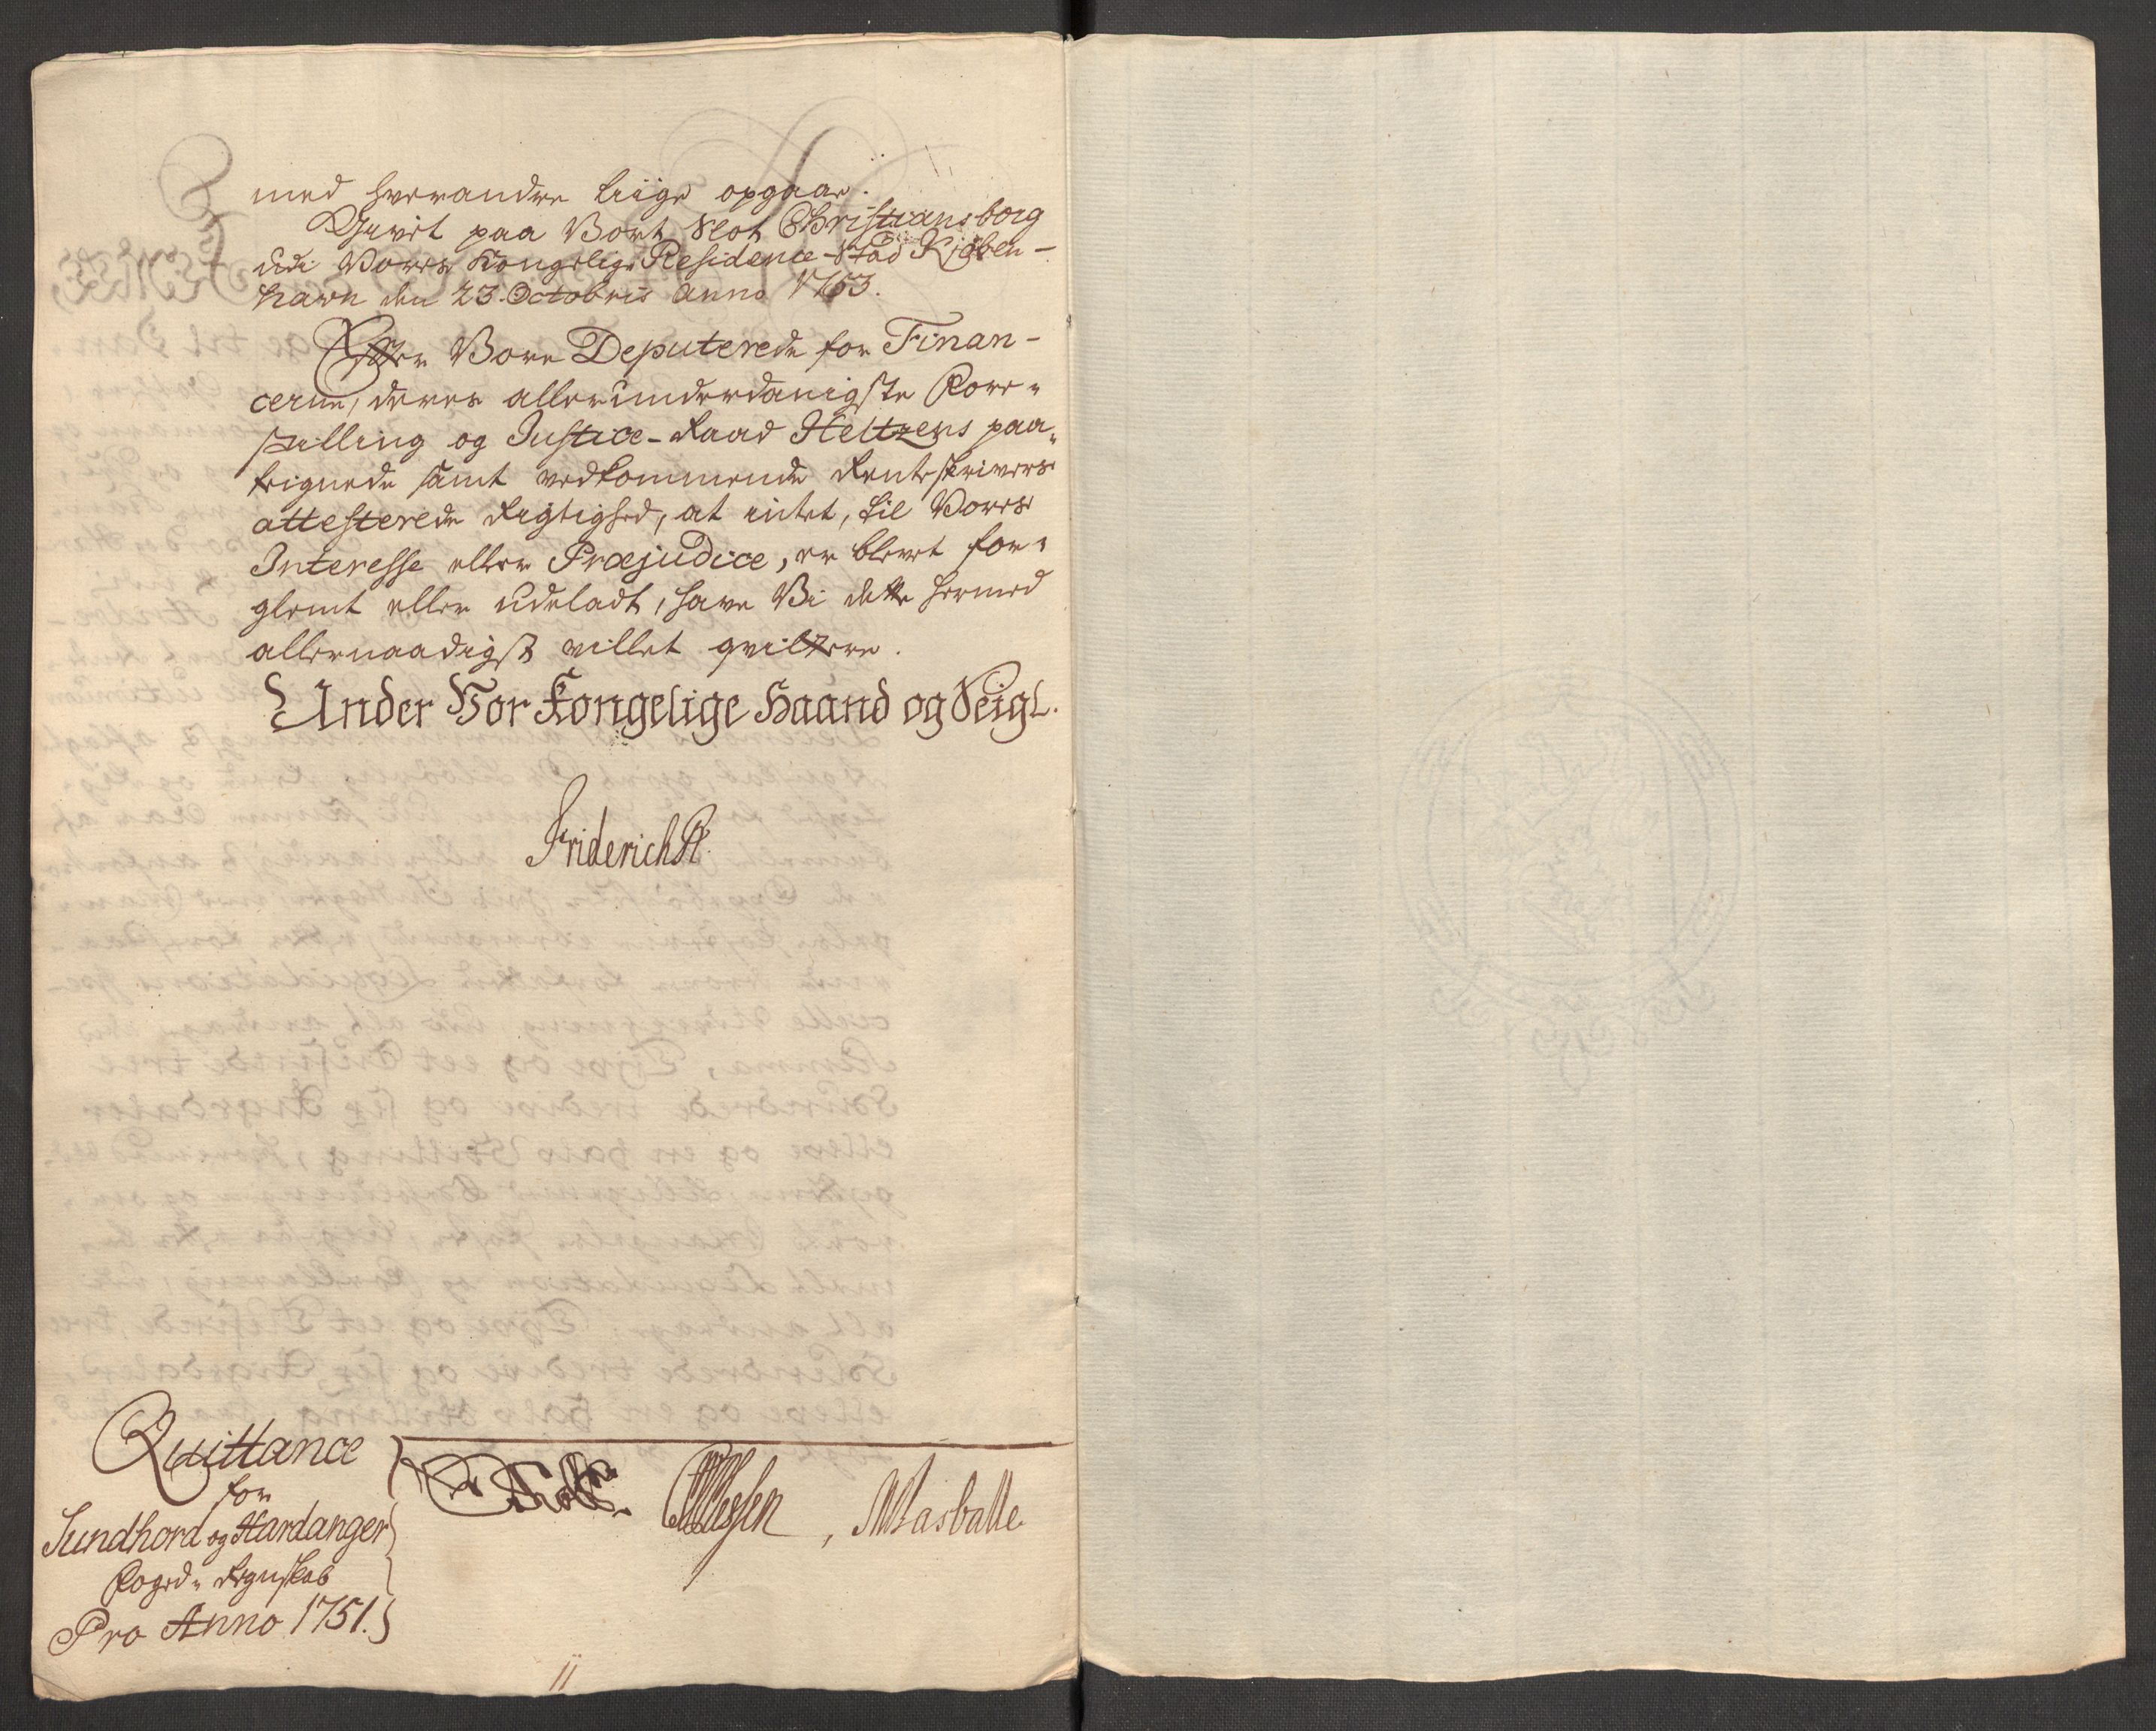 med hverandre liige opgaar.
Givet paa Vort Slot Christiansborg
udi Vores Kongelige Residence-Stad Kiøben-
havn den 23. Octobris Anno 1753.
Efter Vore Deputerede for Finan-
cerne, deres allerunderdanigste Fore-
stilling og Justice-Raad Heltzens paa-
teignede samt vedkommende Renteskrivers
attesterede Rigtighed, at intet, til Vores
Interesse eller Præjudice, er blevet for-
glemt eller udeladt, have Vi dette hermed
allernaadigst villet qvittere.
Under Vor Kongelige Haand og Seigl.
Friderich R.
Quittance
for
Sundhord og Hardanger
Foged- Regnskab
Pro Anno 1751.